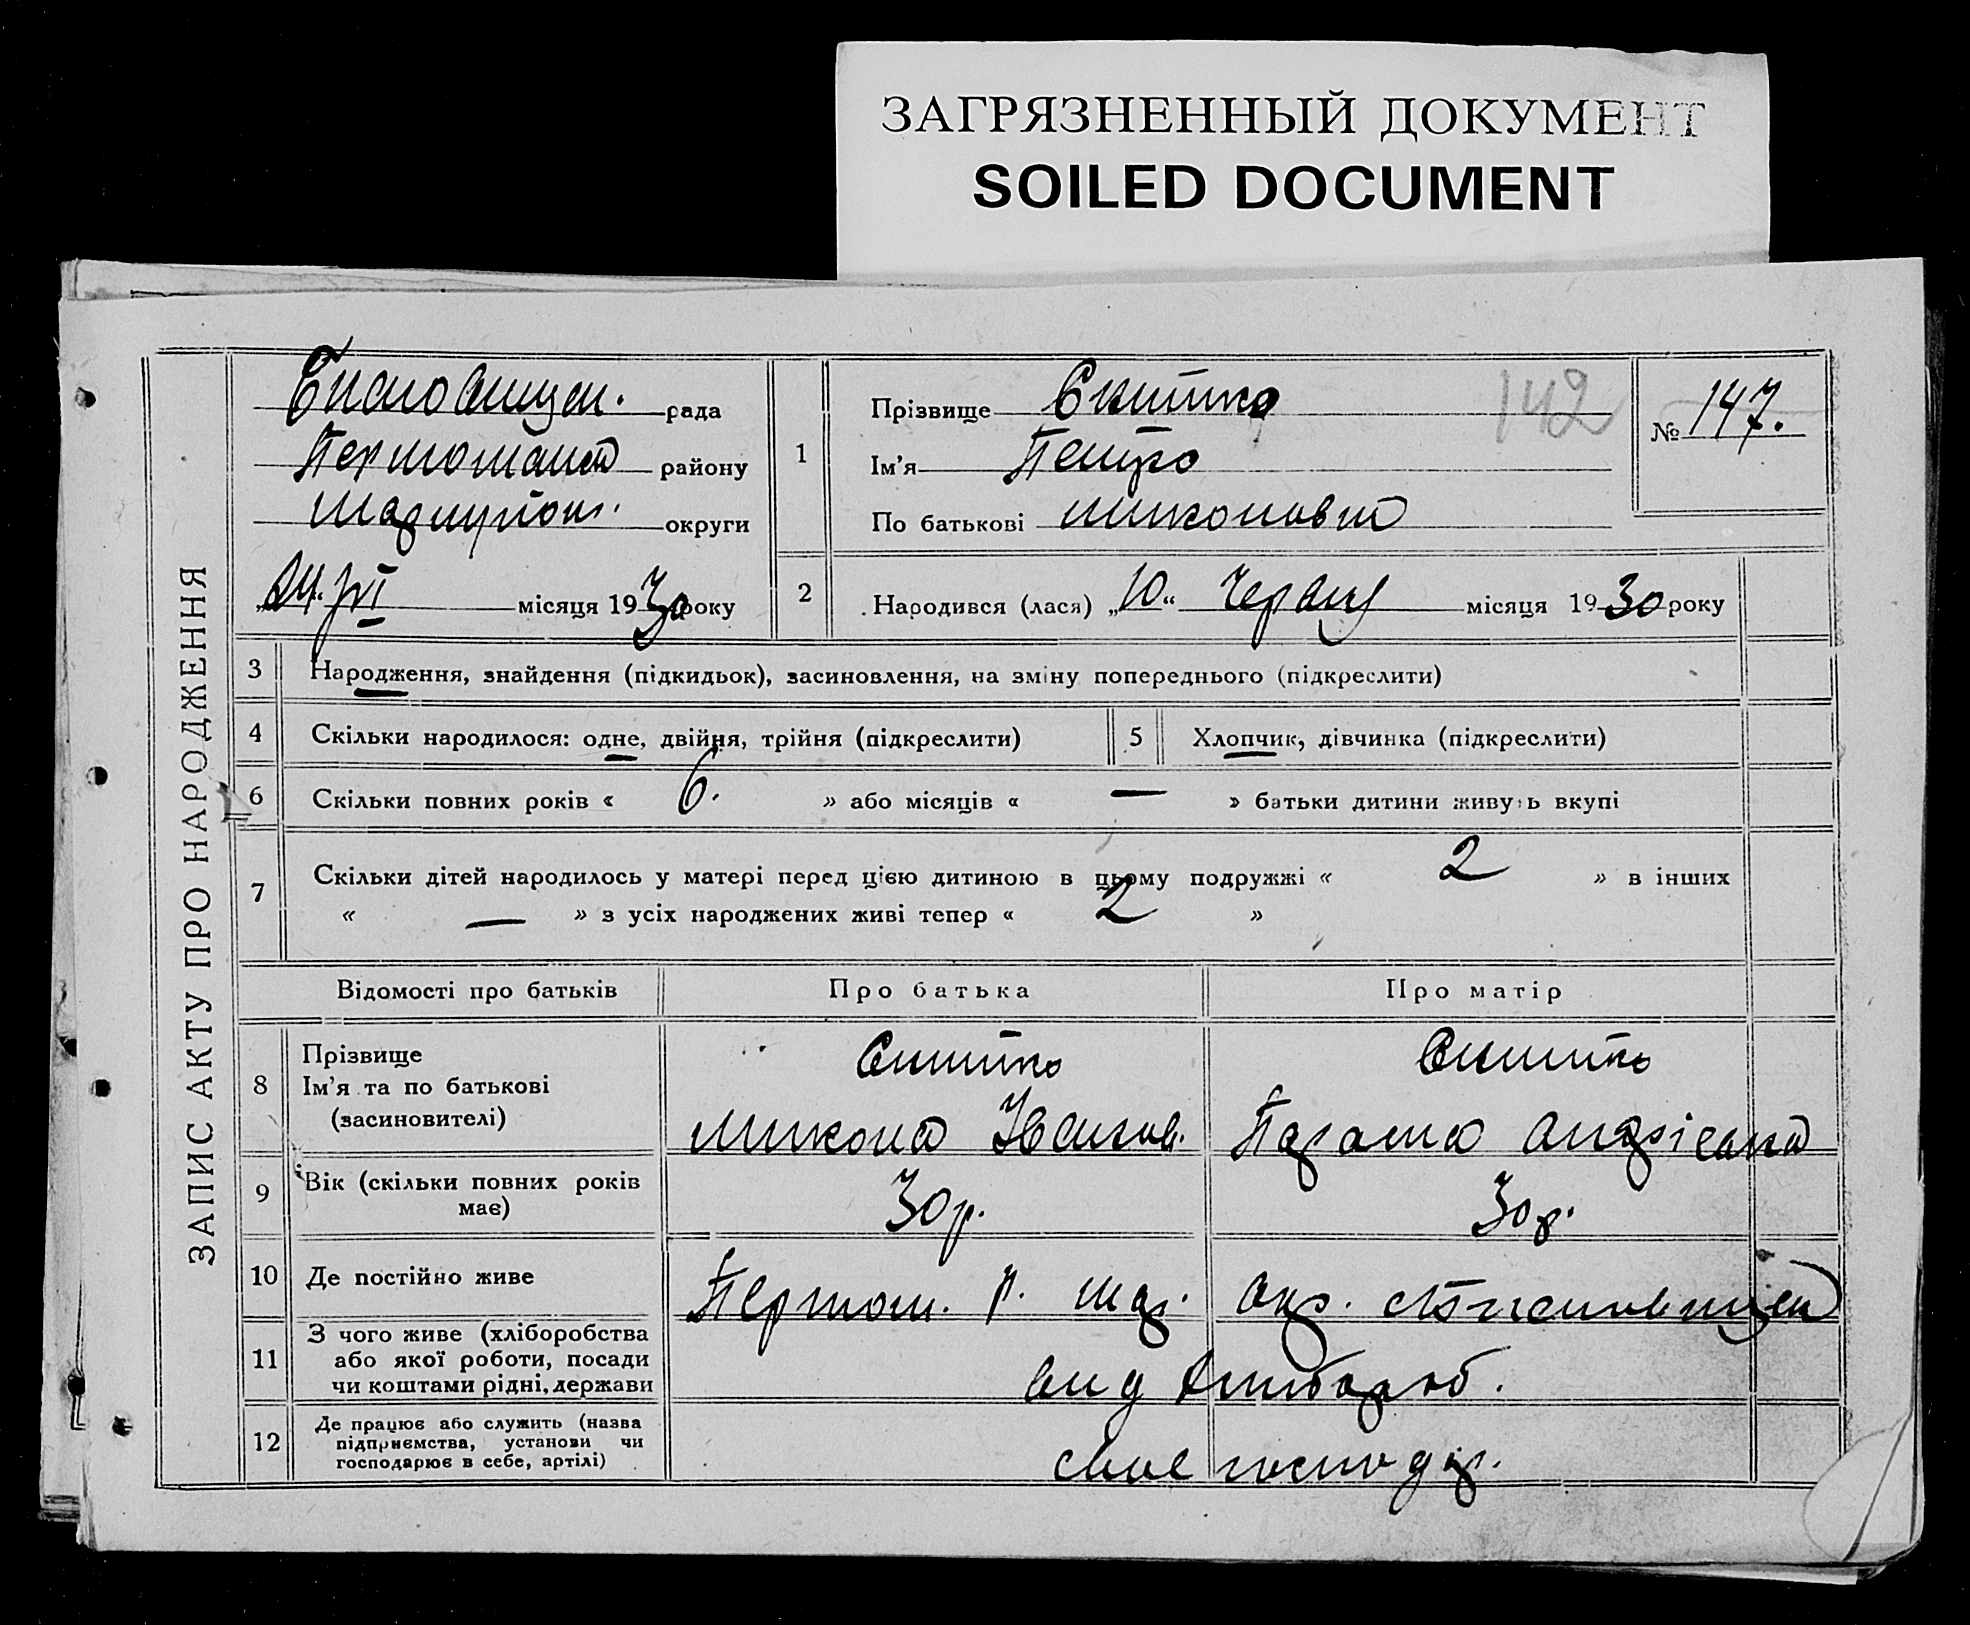 ЗАГРЯЗНЕННЫЙ ДОКУМЕНТ
SOILED DOCUMENT
ЗАПИС АКТУ ПРО НАРОДЖЕННЯ
рада
району
округи
місяця 1930 року
1
Прізвище
142
Ім'я Петро
По батькові Миколович
№ 147.
2 Народився (лася) „10“ Червня місяця 1930 року
3 Народження, знайдення (підкидьок), засиновлення, на зміну попереднього (підкреслити)
4 Скільки народилося: одне, двійня, трійня (підкреслити) 5 Хлопчик, дівчинка (підкреслити)
6 Скільки повних років « 6. » або місяців « — » батьки дитини живуть вкупі
7 Скільки дітей народилось у матері перед цією дитиною в цьому подружжі « 2 » в інших
« — » з усіх народжених живі тепер « 2 »
Відомості про батьків Про батька Про матір
8 Прізвище
Ім'я та по батькові
(засиновителі)
Микола Іванов.
9 Вік (скільки повних років
має)
30 р. 30 р.
10 Де постійно живе
11 З чого живе (хліборобства
або якої роботи, посади
чи коштами рідні, держави
12 Де працює або служить (назва
підприємства, установи чи
господарює в себе, артілі)
своє господар.